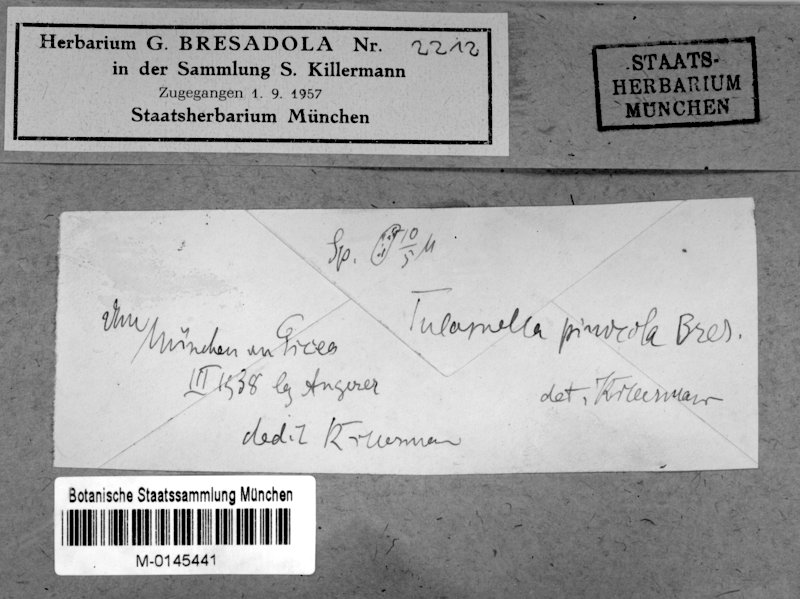 Herbarium G. BRESADOLA Nr. 2212
in der Sammlung S. Killermann
Zugegangen 1. 9. 1957
Staatsherbarium München
STAATS-
HERBARIUM
MÜNCHEN
Sp. 10/5 µ
Tulasnella pinicola Bres.
München an Picea
III 1938 leg Angerer
det. Killermann
dedit Killerman
Botanische Staatssammlung München
M-0145441